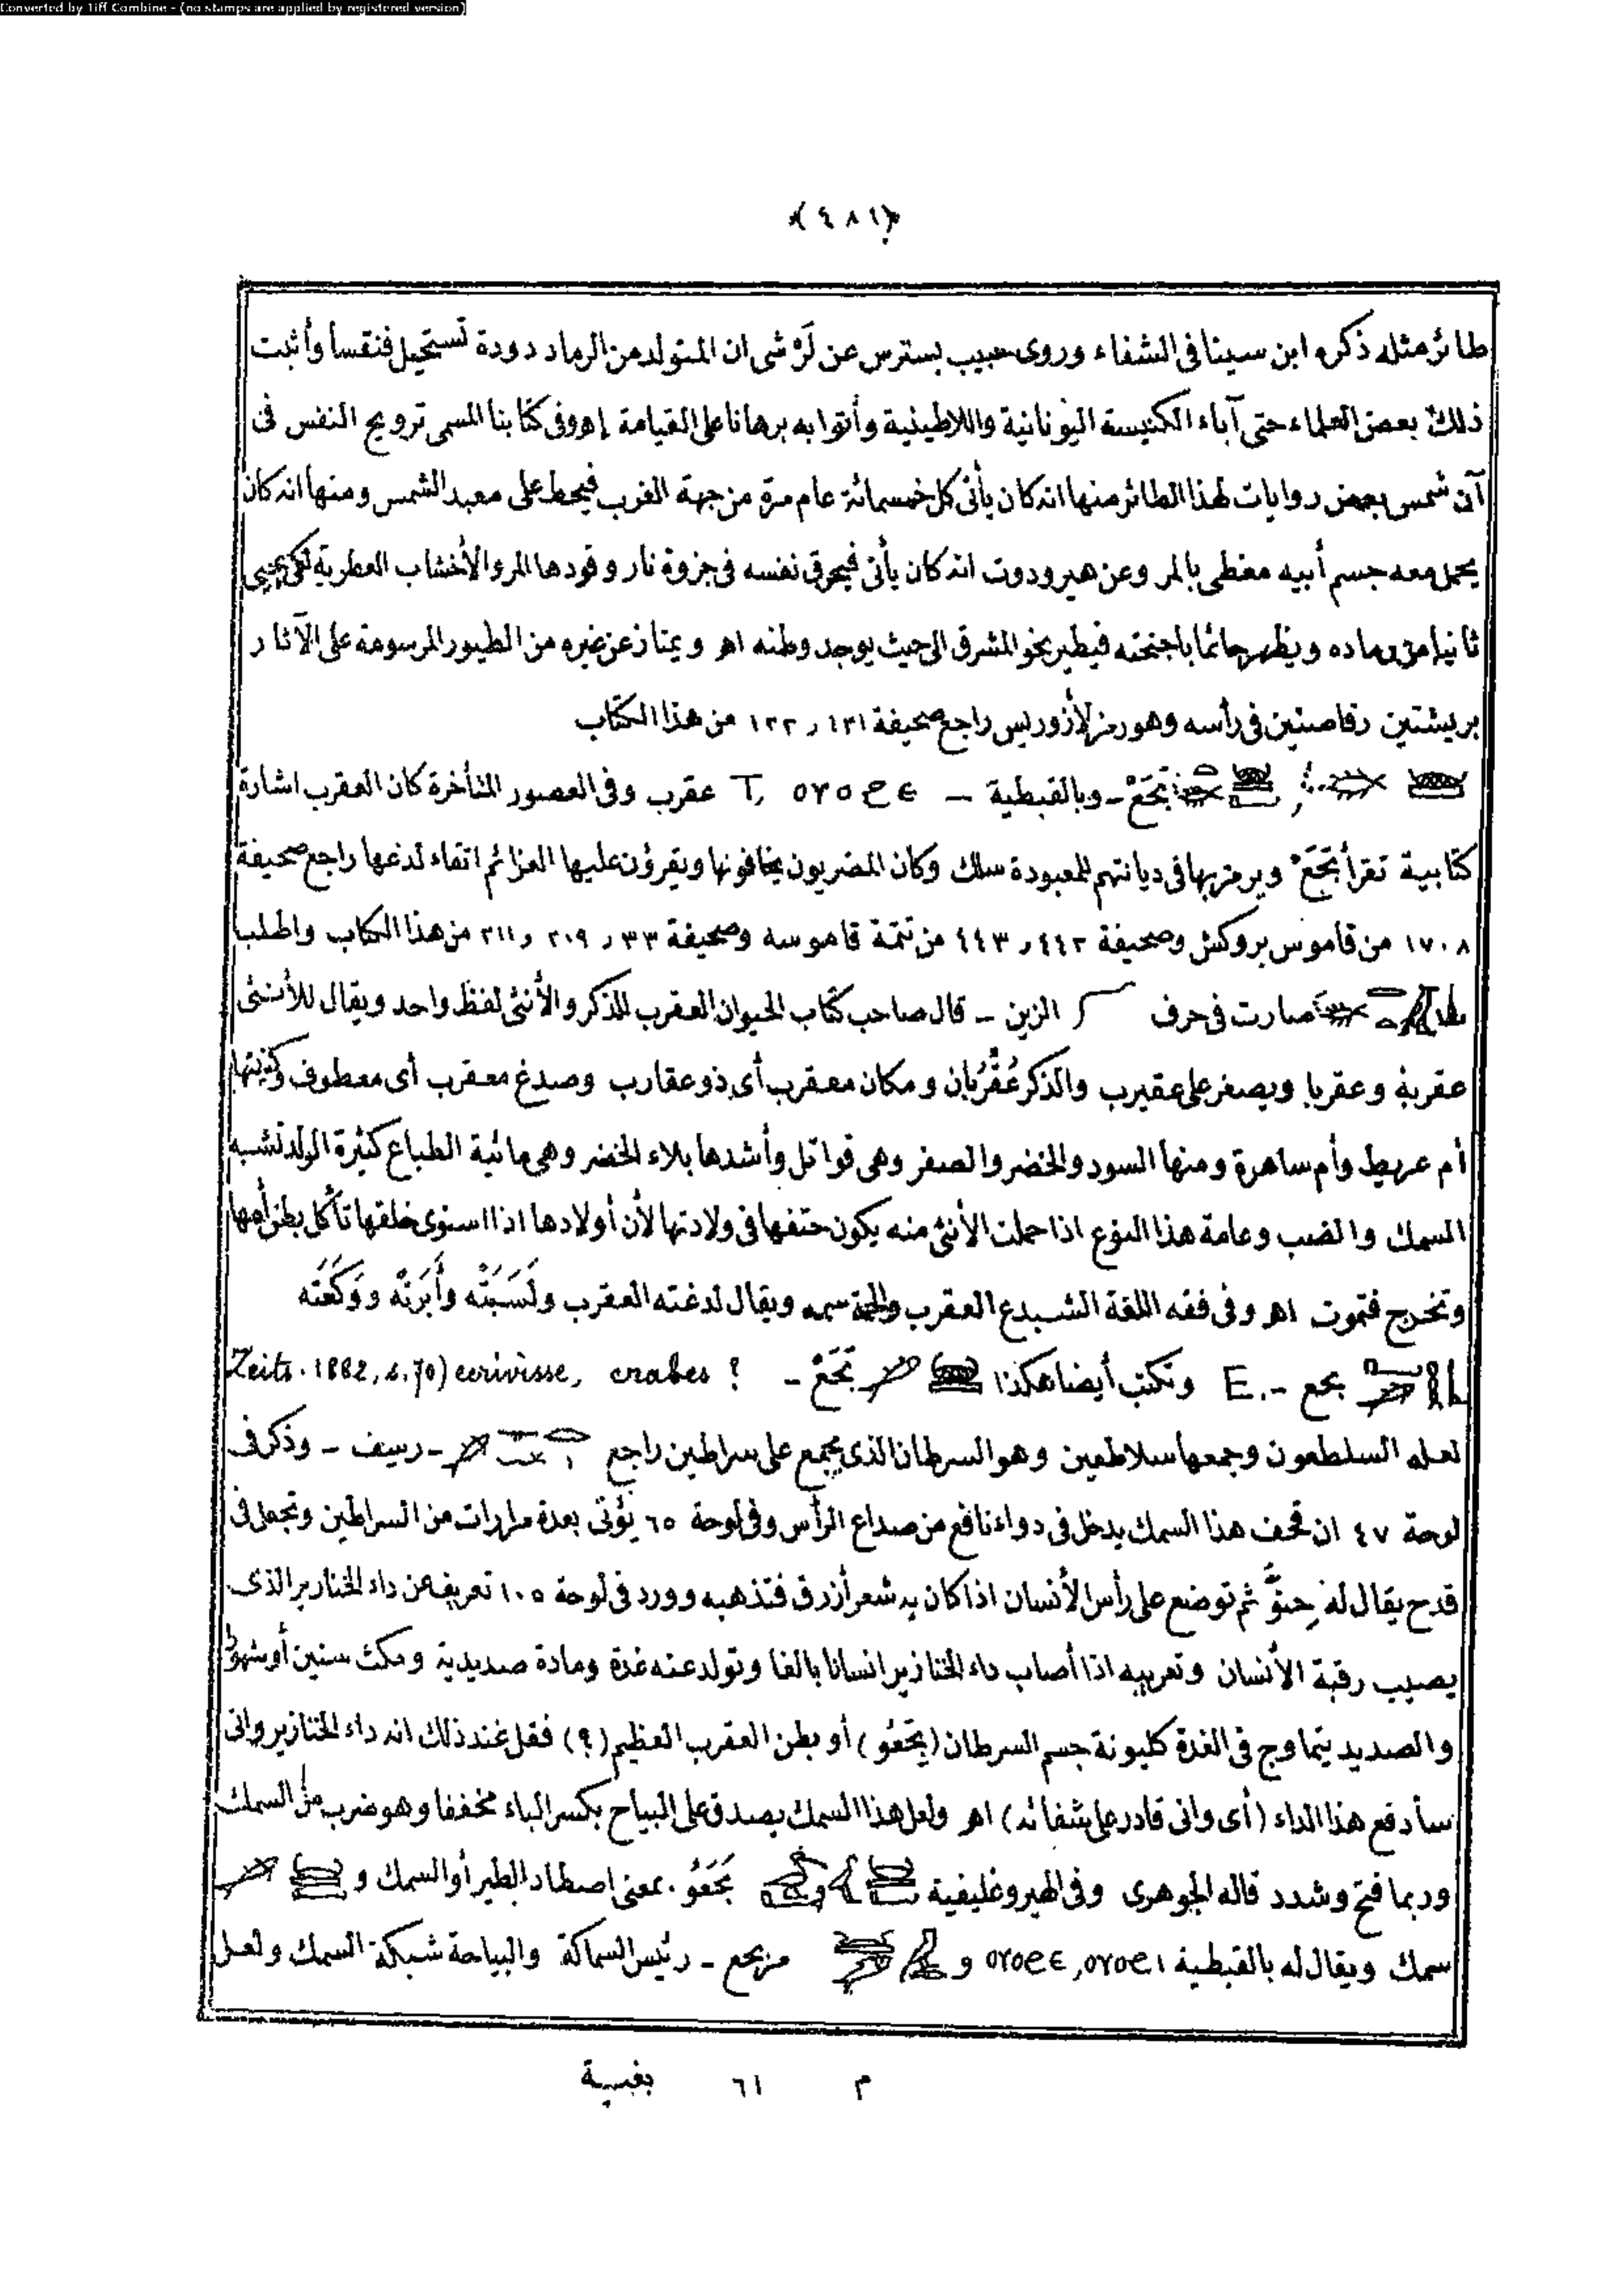 Converted by Tiff Combine - (no stamps are applied by registered version)
﴿٤٨١﴾
طائر مثله ذكره ابن سينا فى الشفاء وروى حبيب بسترس عن لَرْشى ان المتولد من الرماد دودة تستحيل فنقسا وأثبت
ذلك بعض العلماء حتى آباء الكنيسة اليونانية واللاطينية وأتوا به برهانا على القيامة إهـ وفى كتابنا المسمى ترويح النفس فى
آن شمس بعض روايات لهذا الطائر منها انه كان يأتى كل خمسمائة عام مرة من جهة الغرب فيحط على معبد الشمس ومنها انه كان
يحمل معه جسم أبيه مغطى بالمر وعن هيرودوت انه كان يأتى فيحرق نفسه فى جزوة نار وقودها المر والأخشاب العطرية لكى يحيى
ثانيا من رماده ويظهر حائما باجنحته فيطير نحو المشرق الى حيث يوجد وطنه اهـ ويمتاز عن غيره من الطيور المرسومة على الآثار
بريشتين رفاصتين فى رأسه وهو رمز لأزوريس راجع صحيفة ١٣١ و ١٣٢ من هذا الكتاب
تحَعْ - وبالقبطية – T, ⲟⲩⲟϩⲉ عقرب وفى العصور المتأخرة كان العقرب اشارة
كتابية تقرأ تَحَعْ ويرمز بها فى ديانتهم للمعبودة سلك وكان المصريون يخافونها ويقرؤن عليها العزائم اتقاء لدغها راجع صحيفة
١٧٠٨ من قاموس بروكش وصحيفة ٤٤٢ و ٤٤٣ من تتمة قاموسه وصحيفة ٣٣ و ٢٠٩ و ٢١١ من هذا الكتاب واطلب
صارت فى حرف الزين - قال صاحب كتاب الحيوان العقرب للذكر والأنثى لفظ واحد ويقال للأنثى
عقربة وعقربا ويصغر على عقيرب والذكر عُقْرُبان ومكان معقرب أى ذو عقارب وصدغ معقرب أى معطوف وكنيتها
أم عريط وأم ساهرة ومنها السود والخضر والصفر وهى قواتل وأشدها بلاء الخضر وهى مائية الطباع كثيرة الولد تشبه
السمك والضب وعامة هذا النوع اذا حملت الأنثى منه يكون حتفها فى ولادتها لأن أولادها اذا استوى خلقها تأكل بطن أمها
وتخرج فتموت اهـ وفى فقه اللغة الشبدع العقرب والحمة سمه ويقال لدغته العقرب ولَسَبَتْه وأَبَرَتْه ووَكَعَتْه
بحع -. E وتكتب أيضا هكذا تَحَعْ - Zeits. 1882, s. 70) ecrivisse, crabes ?
لعله السلطعون وجمعها سلاطعين وهو السرطان الذى يجمع على سراطين راجع - رسيف - وذكر فى
لوحة ٤٧ ان قحف هذا السمك يدخل فى دواء نافع من صداع الرأس وفى لوحة ٦٥ يؤتى بعدة مرارات من السراطين وتجعل فى
قدح يقال له حِنوّ ثم توضع على رأس الأنسان اذا كان به شعر أزرق فتذهبه وورد فى لوحة ١٠٥ تعريف عن داء الخنازير الذى
يصيب رقبة الأنسان وتعريبه اذا أصاب داء الخنازير انسانا بالغا وتولد عنه غدة ومادة صديدية ومكث سنين أو شهورا
والصديد يتماوج فى الغدة كليونة جسم السرطان (بحَعُو) أو بطن العقرب العظيم (؟) فقل عند ذلك انه داء الخنازير وانى
سأدفع هذا الداء (أى وانى قادر على شفائه) اهـ ولعل هذا السمك يصدق على البياح بكسر الباء مخففا وهو ضرب من السمك
وربما فتح وشدد قاله الجوهرى وفى الهيروغليفية بَحَعُو. بمعنى اصطاد الطير أو السمك و
سمك ويقال له بالقبطية ⲟⲩⲟϩⲉ, ⲟⲩⲟϩⲓ و مربحع - رئيس السماكة والبياحة شبكة السمك ولعل
م ٦١ بغية